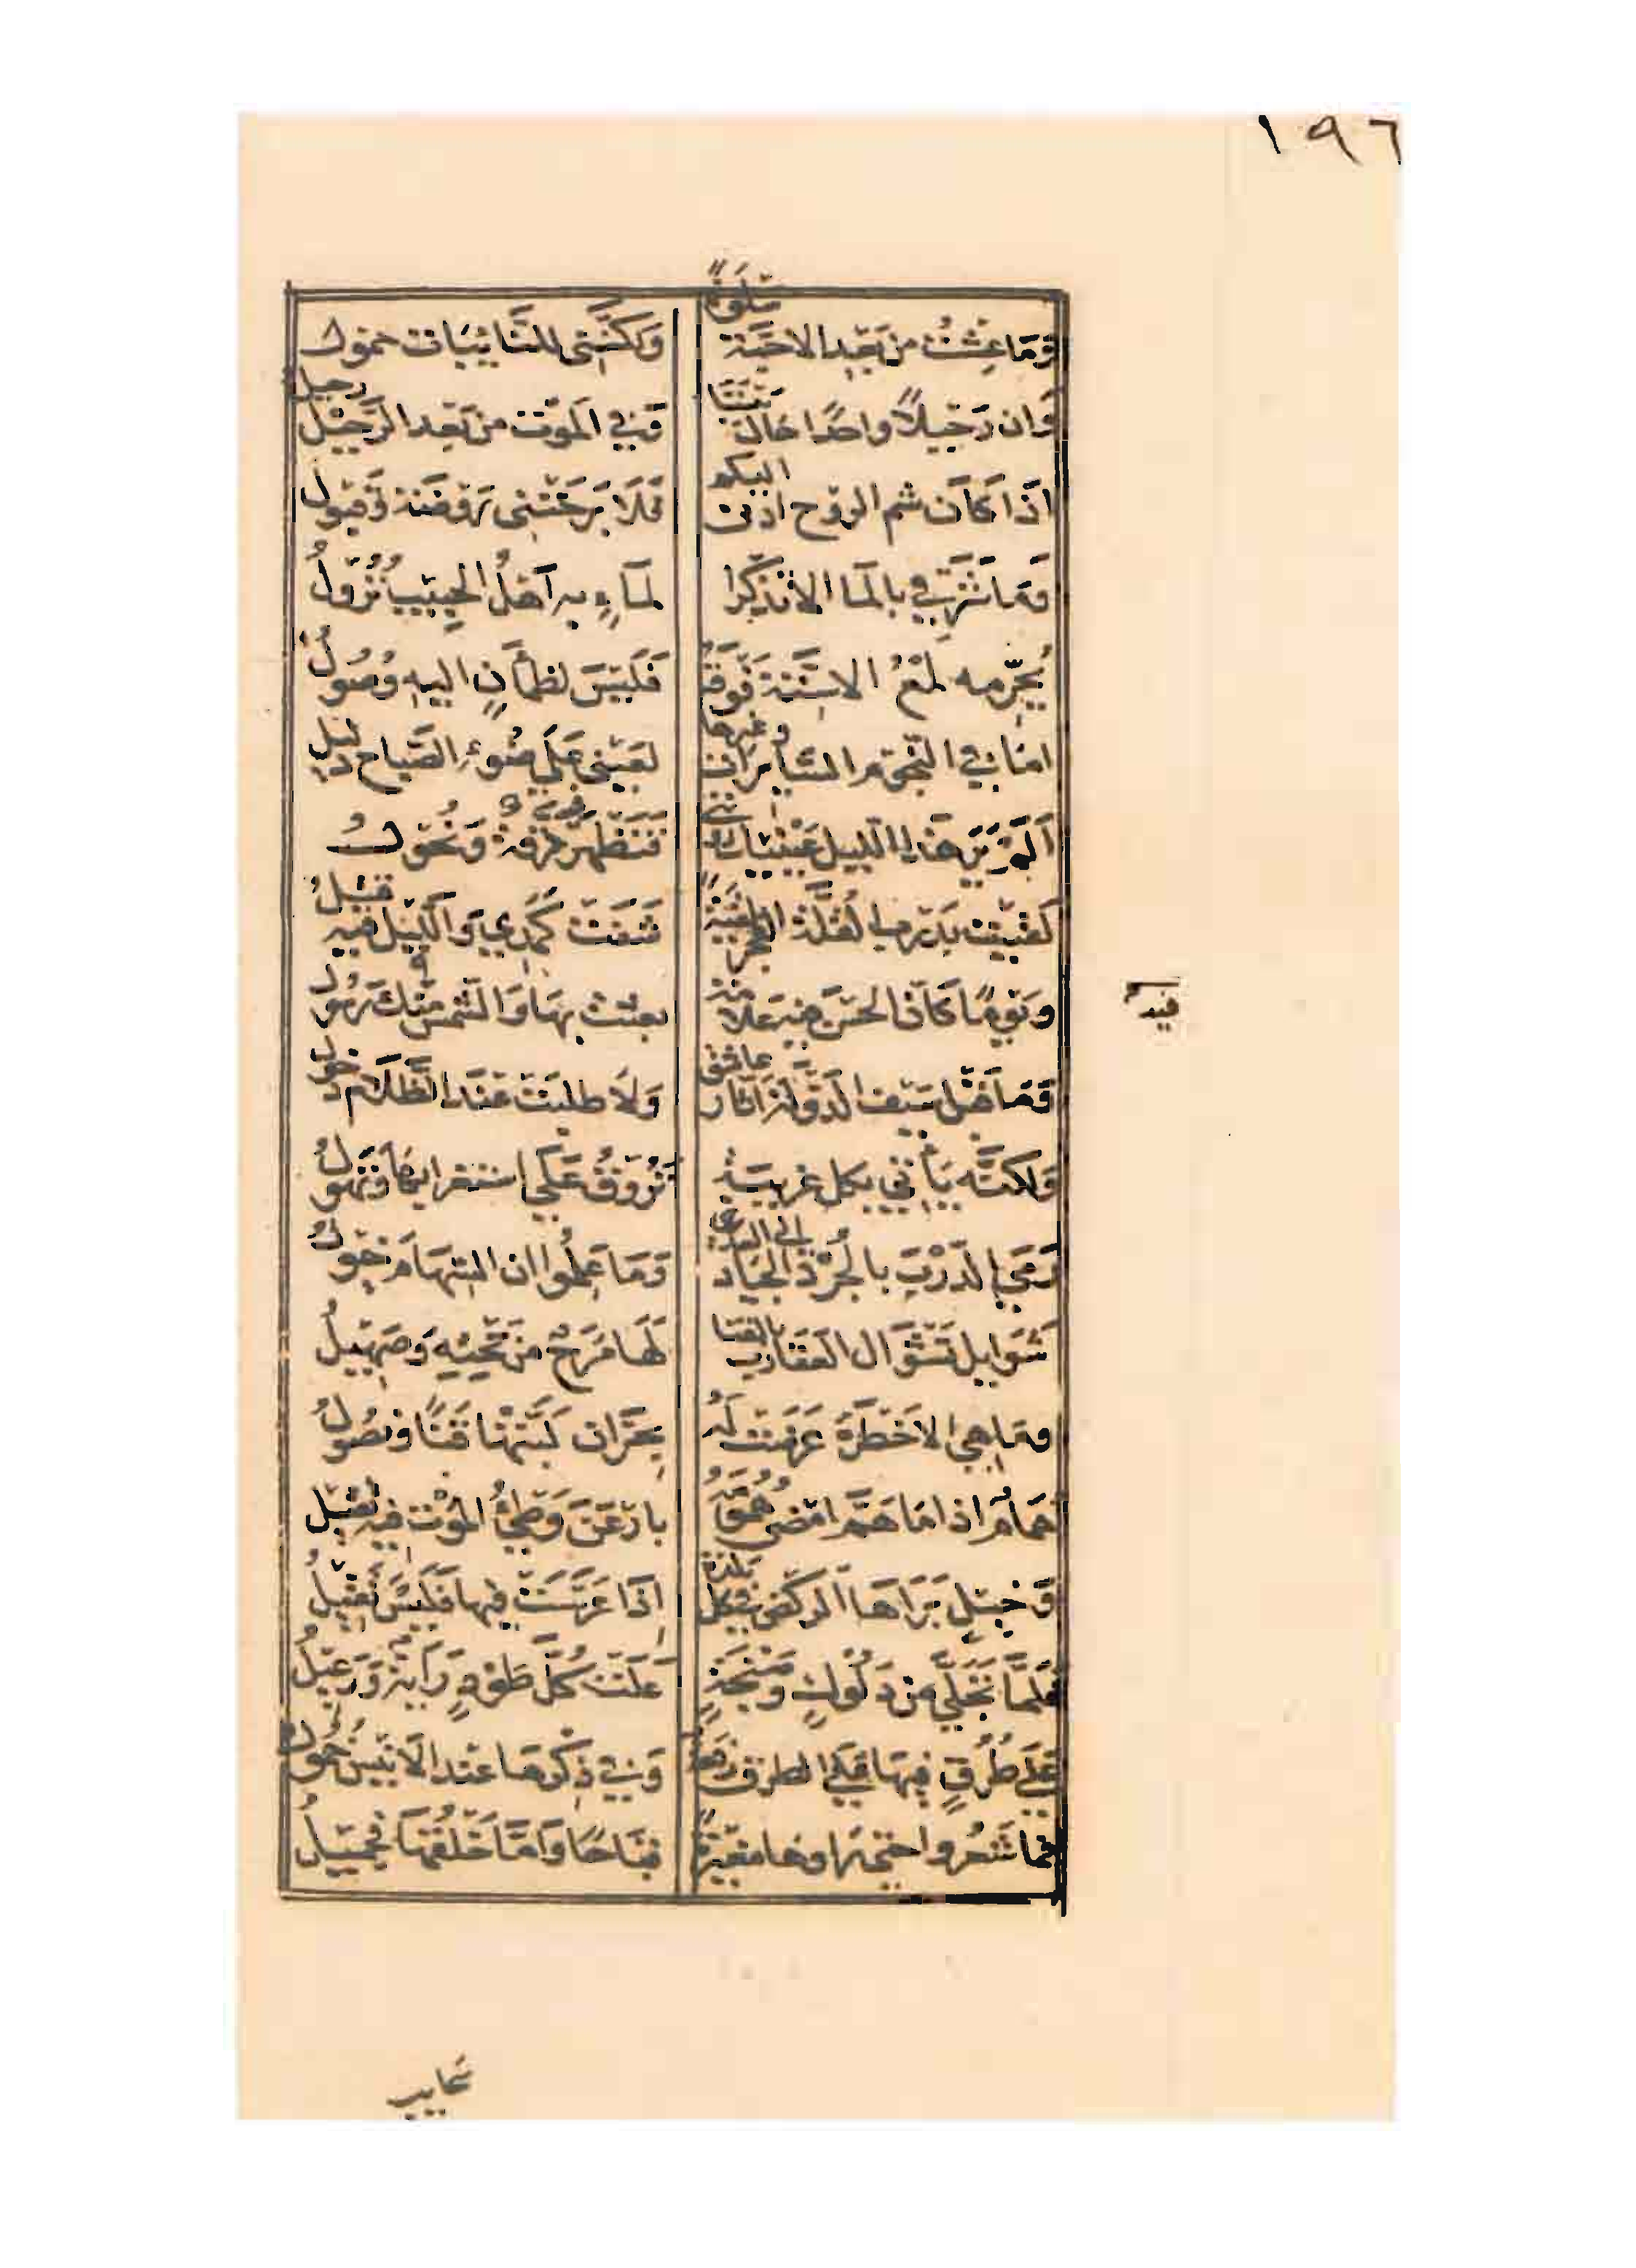 ١٩٦
وَمَا عِشْتُ من بَعْدِ الاحبَّة سَلْوَةً وَلكنَّنِى للنَّايِبَات حمول
وَان رَحِيلاً واحدًا حال بَيْنَنَا وَفي الموْت من بَعْد الرَّحِيْل رحيل
اذَا كَان شم الروْح ادْنى اليكم فَلَا بَرحَتْنِى رَوْضَة وَقبول
وَمَا شَرَقِي بالمَا الا تَذَكُّرًا لمَاءٍ به اَهْلُ الحَبِيْبِ نُزُولُ
يُحَرِّمه لَمْعُ الاسِنَّة فَوْقَهُ فَلَيْسَ لظمْآنٍ اليهِ وُصُولُ
امَا في النجُوم السَّايِرَات وغيرها لعَيْنِى عَلَى ضوْءِ الصَّبَاح دَلِيْل
اَلَمْ يَرَ هَذا الليل عَيْنَيْك فَتَظْهَر فيه رقة وَنُحُول
لَقِيْت بدَرب القُلَّة الفجر شَفَت كَمَدِي وَالليْل فيه قَتِيْلُ
وَيَوْمًا كَان الحسْن فيه علامة بعثت بهَا وَالشمس منك رَسُول
وَمَا قبْل سَيْف الدَّوْلة اثَّار عاشق وَلَا طلبت عنْدَ الظَّلَام ذحول
وَلكنَّه يَأتي بكل غريبَةٍ تَرُوقُ عَلَى استغرابهَا وَتهُولُ
رَمَى الدَّرْبَ بالجُرْدِ الجيَاد الى العدَى وَمَا عَلِمُوا ان السِّهَامَ خيُولُ
شَوَايل تَشْوَال العَقَارِب بالقَنَا لَهَا مَرَحٌ من تَحْتِهِ وَصَهِيلُ
ومَا هي الا خَطْرَةٌ عَرَضَت لَهُ بِحَرَّان لَبَّتْهَا قَنًا وَنصُولُ
هَمَامٌ اذا مَا هَمَّ امْضَى هُمُومَهُ بارْعَنَ وَطْئُ الموْت فيه ثقيل
وَخيْلٍ بَرَاهَا الركض في كل بَلْدة اذَا عَرَّسَت فيها فَلَيْسَ تَقِيْلُ
فَلَمَّا تَجَلَّى من دَلُوكٍ وَصَنْجَةٍ عَلَت كُلَّ طَوْدٍ رَايَة وَرَعِيْلُ
عَلَى طُرُقٍ فيهَا عَلَى الطرق رفعة وَفي ذِكْرهَا عند الانيْس خُمُولُ
فما شَعَرُوا حتى رَاوهَا مغيْرَةً قبَاحًا وَامَّا خَلْقُهَا فجميْلُ
سحايب